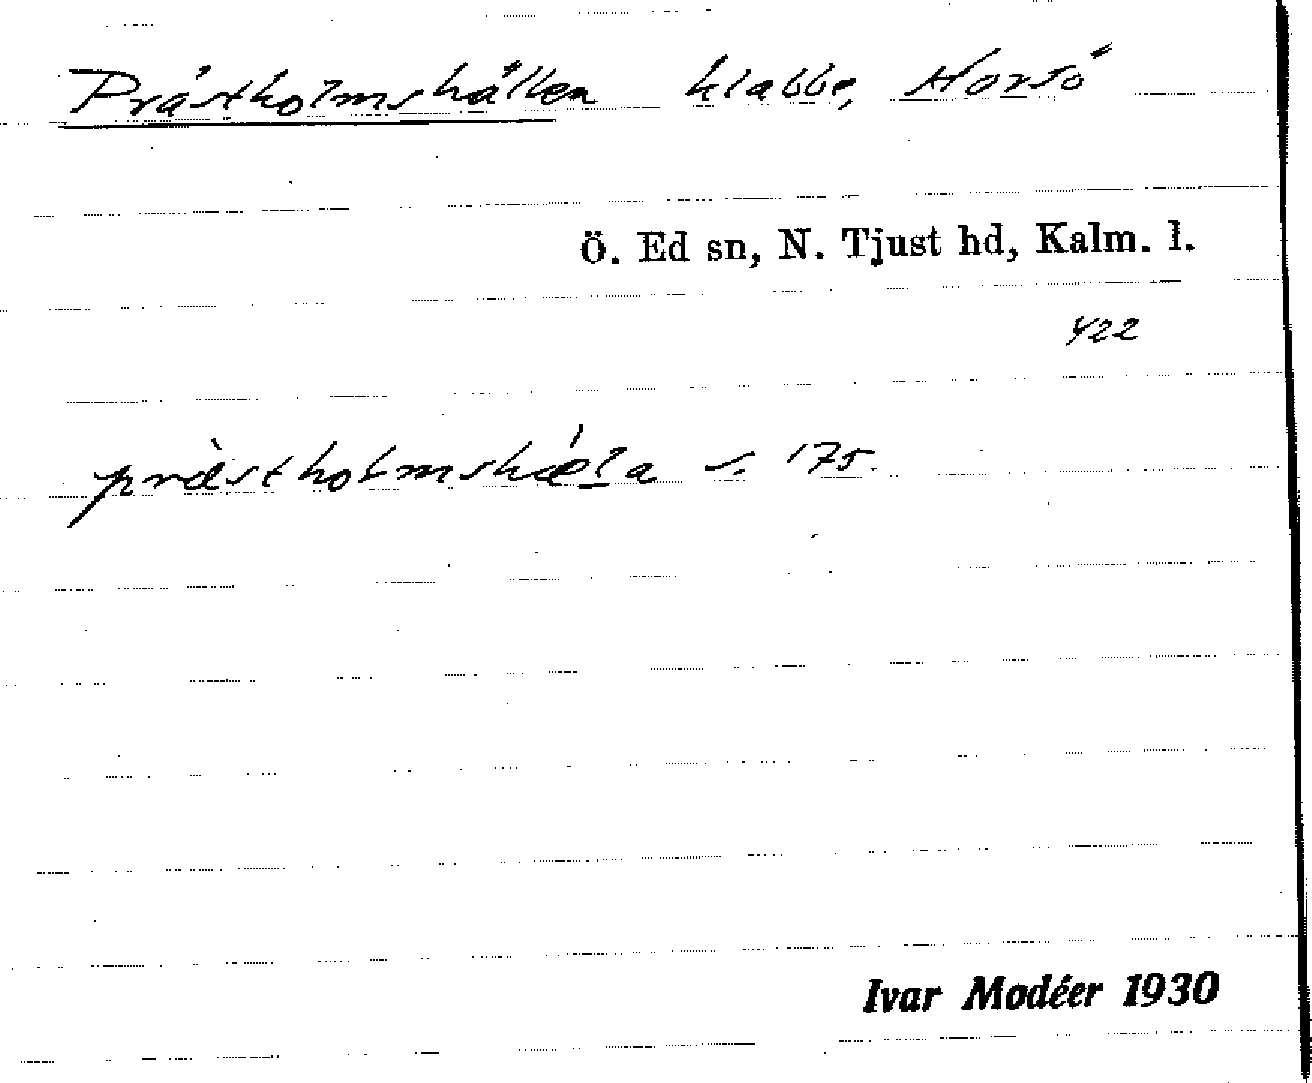 Prästholmshällen klabbe, Horsö
Ö. Ed sn, N. Tjust hd, Kalm. l.
422
pràstholmshǽla s. 175.
Ivar Modéer 1930